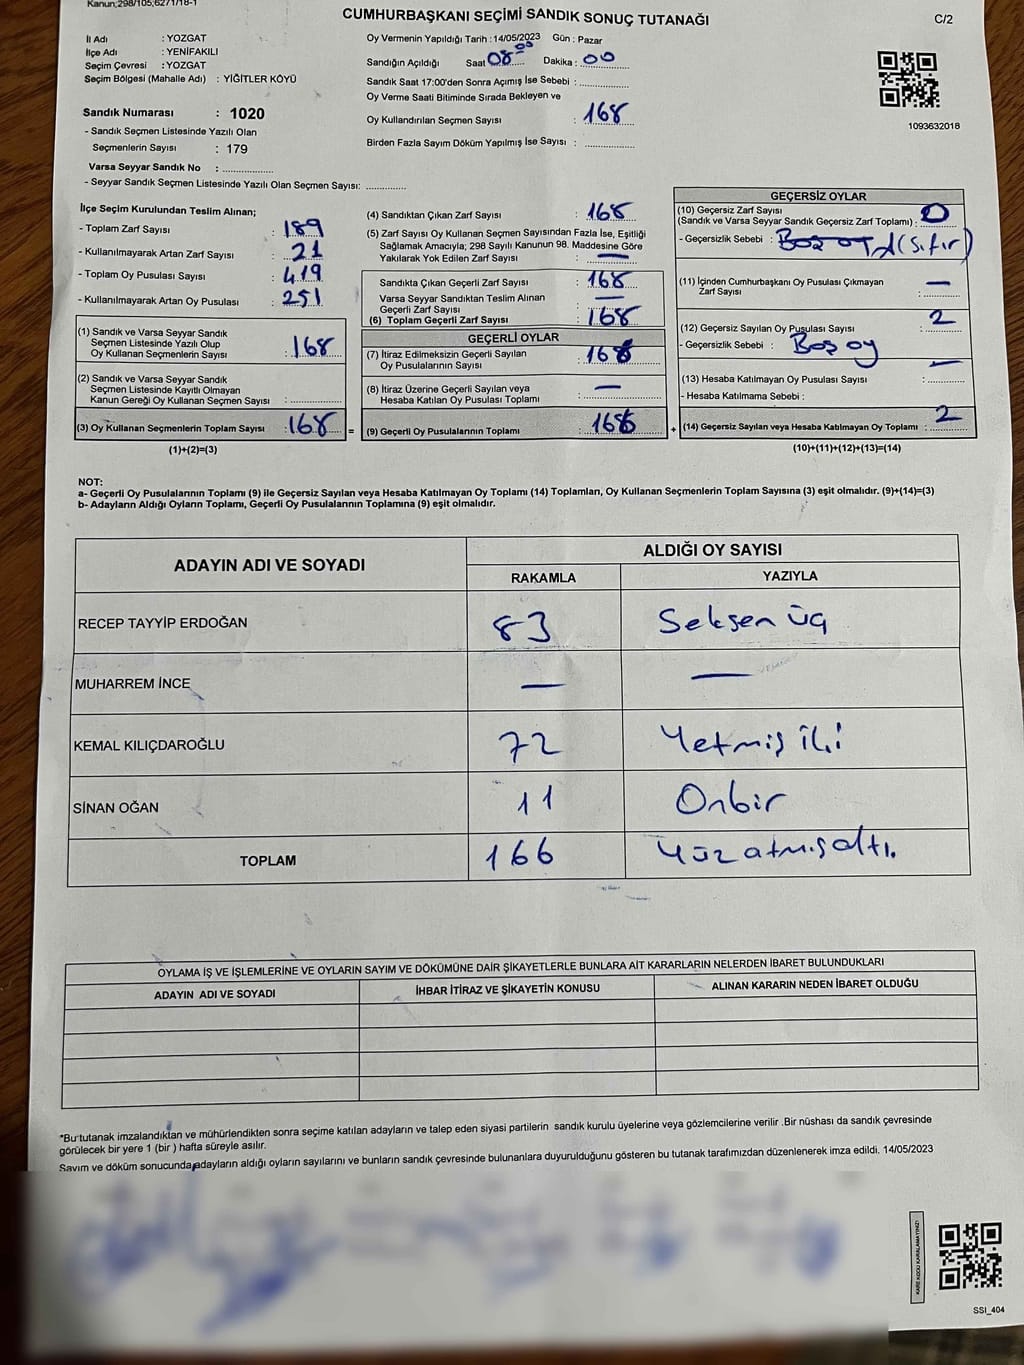 Kanun;298/105,6271/18-1
CUMHURBAŞKANI SEÇİMİ SANDIK SONUÇ TUTANAĞI
C/2
İl Adı : YOZGAT
İlçe Adı : YENİFAKILI
Seçim Çevresi : YOZGAT
Seçim Bölgesi (Mahalle Adı) : YİĞİTLER KÖYÜ
Sandık Numarası : 1020
- Sandık Seçmen Listesinde Yazılı Olan
Seçmenlerin Sayısı : 179
Varsa Seyyar Sandık No :
- Seyyar Sandık Seçmen Listesinde Yazılı Olan Seçmen Sayısı:
Oy Vermenin Yapıldığı Tarih : 14/05/2023 Gün : Pazar
Sandığın Açıldığı Saat 08 00 Dakika : 00
Sandık Saat 17:00'den Sonra Açımış İse Sebebi :
Oy Verme Saati Bitiminde Sırada Bekleyen ve
Oy Kullandırılan Seçmen Sayısı : 168
Birden Fazla Sayım Döküm Yapılmış İse Sayısı :
1093632018
İlçe Seçim Kurulundan Teslim Alınan;
- Toplam Zarf Sayısı : 189
- Kullanılmayarak Artan Zarf Sayısı : 21
- Toplam Oy Pusulası Sayısı : 419
- Kullanılmayarak Artan Oy Pusulası : 251
(1) Sandık ve Varsa Seyyar Sandık
Seçmen Listesinde Yazılı Olup
Oy Kullanan Seçmenlerin Sayısı : 168
(2) Sandık ve Varsa Seyyar Sandık
Seçmen Listesinde Kayıtlı Olmayan
Kanun Gereği Oy Kullanan Seçmen Sayısı :
(3) Oy Kullanan Seçmenlerin Toplam Sayısı : 168 =
(1)+(2)=(3)
(4) Sandıktan Çıkan Zarf Sayısı : 168
(5) Zarf Sayısı Oy Kullanan Seçmen Sayısından Fazla İse, Eşitliği
Sağlamak Amacıyla; 298 Sayılı Kanunun 98. Maddesine Göre
Yakılarak Yok Edilen Zarf Sayısı : —
Sandıkta Çıkan Geçerli Zarf Sayısı : 168
Varsa Seyyar Sandıktan Teslim Alınan
Geçerli Zarf Sayısı : —
(6) Toplam Geçerli Zarf Sayısı : 168
GEÇERLİ OYLAR
(7) İtiraz Edilmeksizin Geçerli Sayılan
Oy Pusulalarının Sayısı :
(8) İtiraz Üzerine Geçerli Sayılan veya
Hesaba Katılan Oy Pusulası Toplamı : —
(9) Geçerli Oy Pusulalarının Toplamı : +
GEÇERSİZ OYLAR
(10) Geçersiz Zarf Sayısı
(Sandık ve Varsa Seyyar Sandık Geçersiz Zarf Toplamı) : 0
- Geçersizlik Sebebi : (Sıfır)
(11) İçinden Cumhurbaşkanı Oy Pusulası Çıkmayan
Zarf Sayısı : —
(12) Geçersiz Sayılan Oy Pusulası Sayısı : 2
- Geçersizlik Sebebi : Boş oy
(13) Hesaba Katılmayan Oy Pusulası Sayısı : —
- Hesaba Katılmama Sebebi :
(14) Geçersiz Sayılan veya Hesaba Katılmayan Oy Toplamı : 2
(10)+(11)+(12)+(13)=(14)
NOT:
a- Geçerli Oy Pusulalarının Toplamı (9) ile Geçersiz Sayılan veya Hesaba Katılmayan Oy Toplamı (14) Toplamları, Oy Kullanan Seçmenlerin Toplam Sayısına (3) eşit olmalıdır. (9)+(14)=(3)
b- Adayların Aldığı Oyların Toplamı, Geçerli Oy Pusulalarının Toplamına (9) eşit olmalıdır.
ADAYIN ADI VE SOYADI
ALDIĞI OY SAYISI
RAKAMLA YAZIYLA
RECEP TAYYİP ERDOĞAN 83 Seksen üç
MUHARREM İNCE — —
KEMAL KILIÇDAROĞLU 72 Yetmiş iki
SİNAN OĞAN 11 Onbir
TOPLAM 166 Yüz atmış altı.
OYLAMA İŞ VE İŞLEMLERİNE VE OYLARIN SAYIM VE DÖKÜMÜNE DAİR ŞİKAYETLERLE BUNLARA AİT KARARLARIN NELERDEN İBARET BULUNDUKLARI
ADAYIN ADI VE SOYADI İHBAR İTİRAZ VE ŞİKAYETİN KONUSU ALINAN KARARIN NEDEN İBARET OLDUĞU
*Bu tutanak imzalandıktan ve mühürlendikten sonra seçime katılan adayların ve talep eden siyasi partilerin sandık kurulu üyelerine veya gözlemcilerine verilir .Bir nüshası da sandık çevresinde
görülecek bir yere 1 (bir ) hafta süreyle asılır.
Sayım ve döküm sonucunda adayların aldığı oyların sayılarını ve bunların sandık çevresinde bulunanlara duyurulduğunu gösteren bu tutanak tarafımızdan düzenlenerek imza edildi. 14/05/2023
KARE KODU KARALAMAYINIZ!
SSI_404